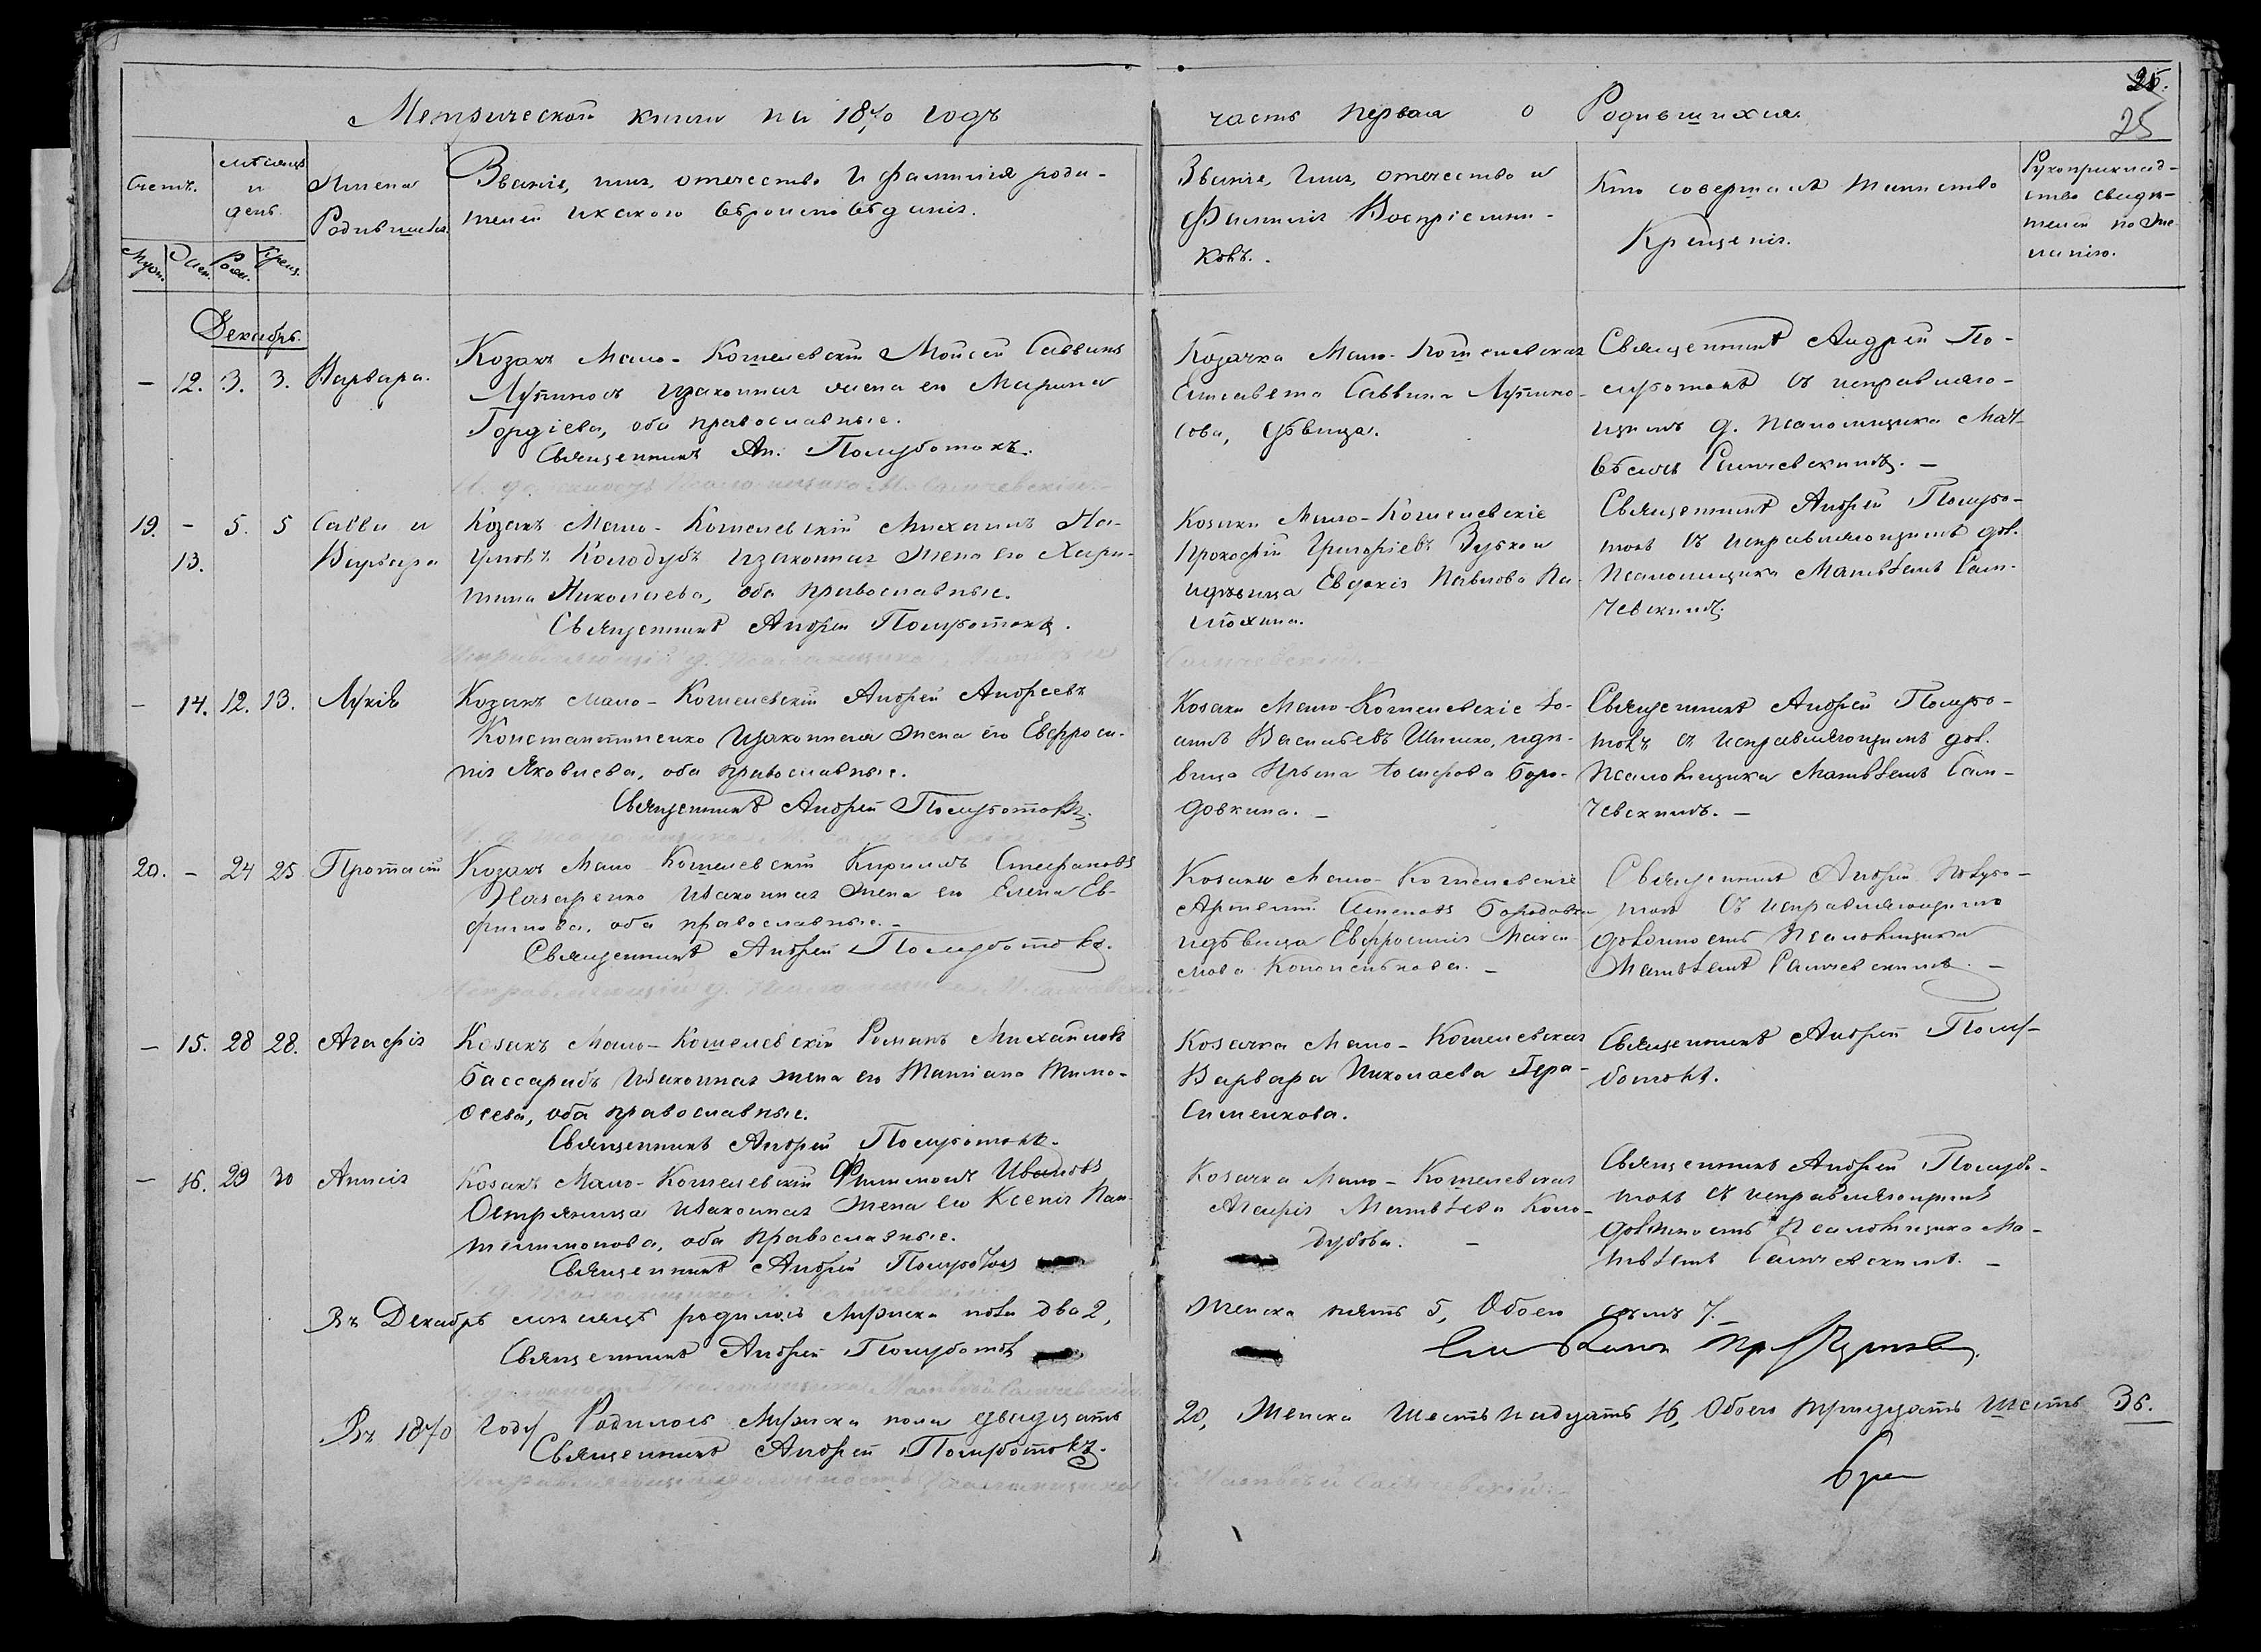 25.
25
Метрической книги на 1870 годъ
часть первая о Родившихся.
Счетъ.
Муж.
Жен.
мѣсяцъ
и
день.
Рожд.
Крещ.
Имена
Родившихся.
Званіе, имя, отечество и фамилія роди-
телей и какого вѣроисповѣданія.
Званіе, имя, отечество и
Фамилія Воспріемни-
ковъ.
Кто совершалъ таинство
Крещенія.
Рукоприклад-
ство свидѣ-
телей по же-
ланію.
Декабрь.
- 12. 3. 3. Варвара.
Козакъ Мало-Кошелевскій Моисей Саввинъ
и законная жена его Марина
Гордіева, оба православные.
Священникъ Ан. Полуботокъ.
И. должность Псаломщика М. Самчевскій.
Козачка Мало-Кошелевская
Елисавета Саввина
дѣвица.
Священникъ Андрей По-
луботокъ съ исправляю-
щимъ д. псаломщика Мат-
вѣемъ Самчевскимъ. -
19. - 5. 5 Савва и
13. Варвара
Козакъ Мало-Кошелевскій Михаилъ На-
умовъ Колодубъ и законная жена его Хари-
тина Николаева, оба православные.
Священникъ Андрей Полуботокъ.
Исправляющій д. Псаломщика Матвѣй Самчевскій.
Козаки Мало-Кошелевскіе
Прокофій Григоріевъ Зубко и
и дѣвица Евдокія Павлова
Священникъ Андрей Полубо-
токъ съ исправляющимъ дол.
Псаломщика Матвѣемъ Сам-
чевскимъ.
- 14. 12. 13. Лукія
Козакъ Мало-Кошелевскій Андрей Андреевъ
Константиненко и законная жена его Евфроси-
нія Яковлева, оба православные.
Священникъ Андрей Полуботокъ.
И. д. псаломщика М. Самчевскій.
Козаки Мало-Кошелевскіе Іо-
аннъ Васильевъ и дѣ-
вица Боро-
довкина. -
Священникъ Андрей Полубо-
токъ съ исправляющимъ дол.
Псаломщика Матвѣемъ Сам-
чевскимъ. -
20. - 24 25 Протасій
Козакъ Мало-Кошелевскій Кириллъ Стефановъ
Назаренко и законная жена его Елена Ев-
фимова, оба православные. -
Священникъ Андрей Полуботокъ.
Исправляющій д. Псаломщика М. Самчевскій.
Козаки Мало-Кошелевскіе
Артемій Бородовка
и дѣвица Евфросинія Макси-
мова -
Священникъ Андрей Полубо-
токъ съ исправляющимъ
должность Псаломщика
Матвѣемъ Самчевскимъ. -
- 15. 28 28. Агафія
Козакъ Мало-Кошелевскій Романъ Михайловъ
Бассарабъ и законная жена его Татіана Тимо-
ѳеева, оба православные.
Священникъ Андрей Полуботокъ.
Козачка Мало-Кошелевская
Варвара Николаева Гера-
сименкова.
Священникъ Андрей Полу-
ботокъ.
- 16. 29 30 Аннія
Козакъ Мало-Кошелевскій Филимонъ Ивановъ
Остряница и законная жена его Ксенія Пан-
телимонова, оба православные.
Священникъ Андрей Полуботокъ
И. д. Псаломщика М. Самчевскій.
Козачка Мало-Кошелевская
Агафія Матвѣева Коло-
дубова. -
Священникъ Андрей Полубо-
токъ съ исправляющимъ
должность Псаломщика Ма-
твѣемъ Самчевскимъ. -
Въ Декабрѣ мѣсяцѣ родилось Мужска пола два 2, Женска пять 5, Обоего семь 7. -
Священникъ Андрей Полуботокъ
И. должность Псаломщика Матвѣй Самчевскій.
Въ 1870 году Родилось Мужска пола двадцать 20, Женска Шестьнадцать 16, Обоего тридцать шесть 36.
Священникъ Андрей Полуботокъ.
Исправляющій должность Псаломщика Матвѣй Самчевскій.